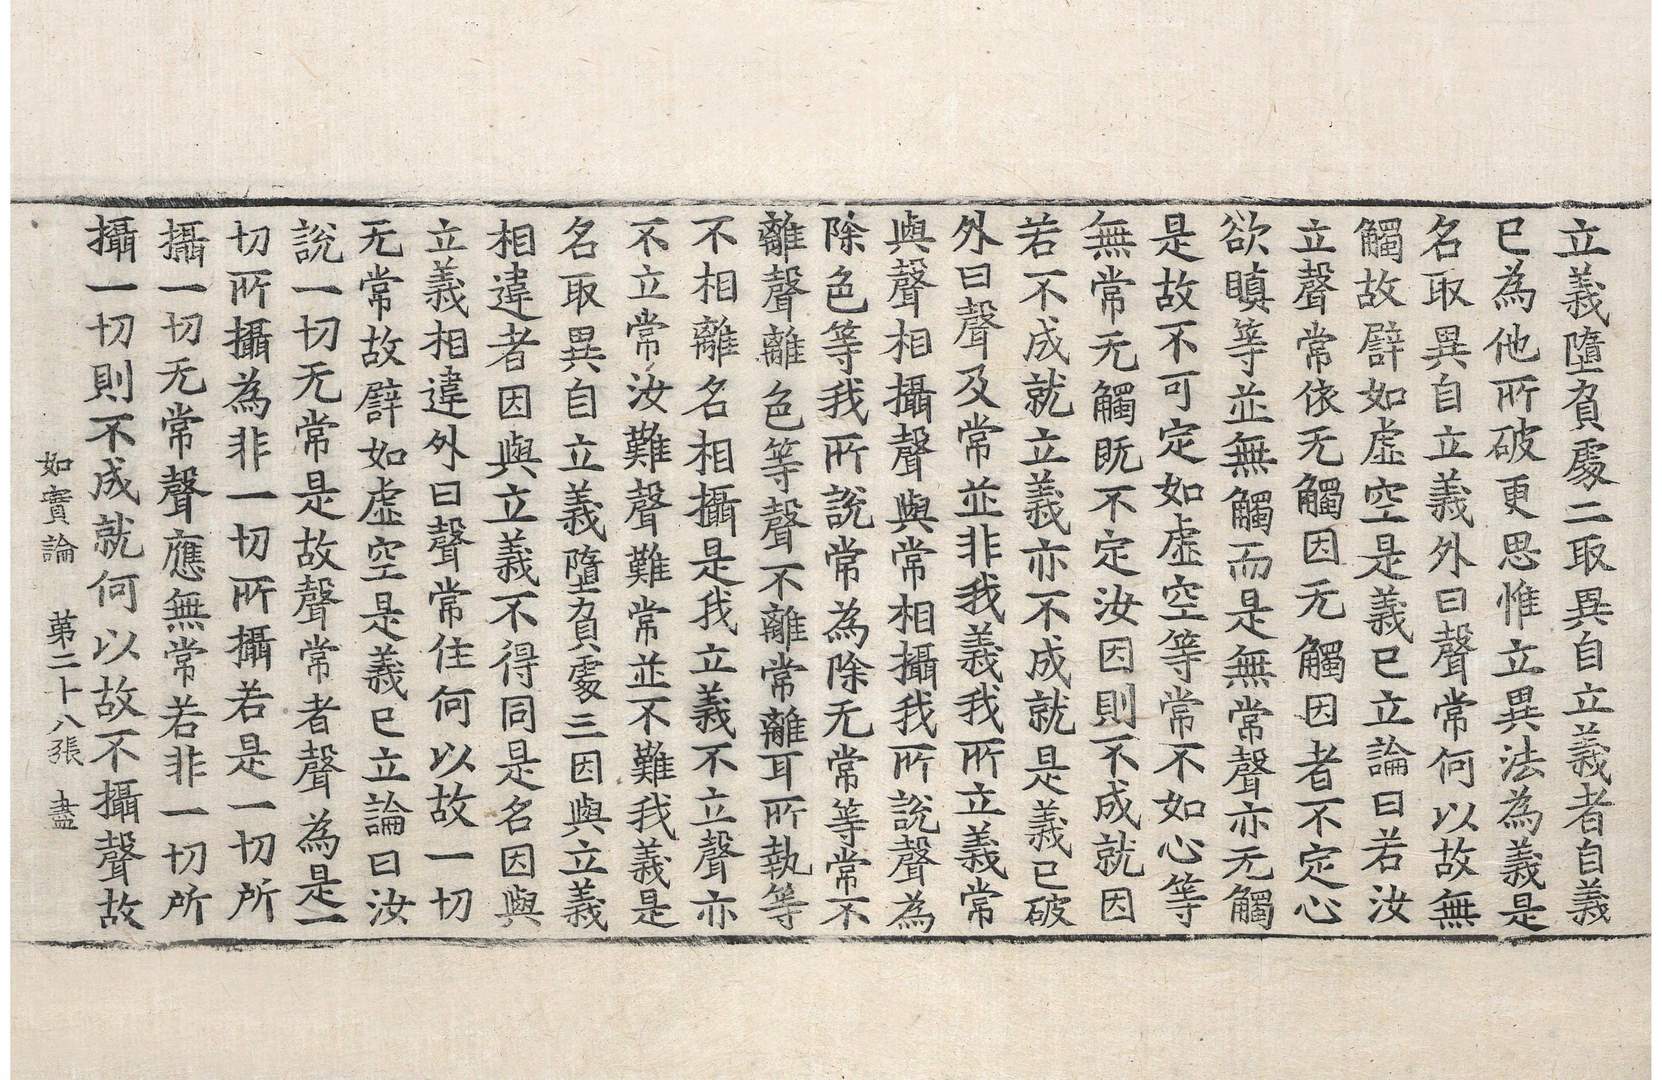 立義墮負處二取異自立義者自義
已為他所破更思惟立異法為義是
名取異自立義外曰聲常何以故無
觸故譬如虛空是義已立論曰若汝
立聲常依无觸因无觸因者不定心
欲瞋等並無觸而是無常聲亦无觸
是故不可定如虛空等常不如心等
無常无觸旣不定汝因則不成就因
若不成就立義亦不成就是義已破
外曰聲及常並非我義我所立義常
與聲相攝聲與常相攝我所說聲為
除色等我所說常為除无常等常不
離聲離色等聲不離常離耳所執等
不相離名相攝是我立義不立聲亦
不立常汝難聲難常並不難我義是
名取異自立義墮負處三因與立義
相違者因與立義不得同是名因與
立義相違外曰聲常住何以故一切
无常故譬如虛空是義已立論曰汝
說一切无常是故聲常者聲為是一
切所攝為非一切所攝若是一切所
攝一切无常聲應無常若非一切所
攝一切則不成就何以故不攝聲故
如實論 第二十八張 盡